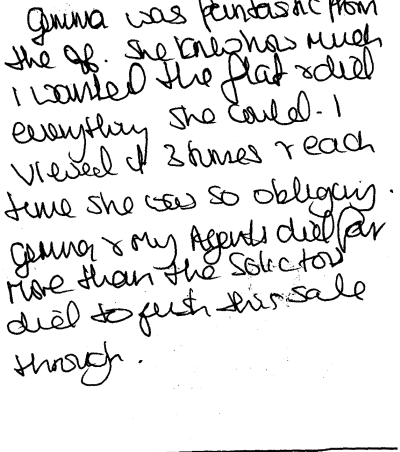 Gemma was fantastic from
the off. She knew how much
I wanted the flat & did
everything she could. I
viewed it 3 times & each
time she was so obliging.
Gemma & my Agents did far
more than the solicitor
did to push this sale
through.